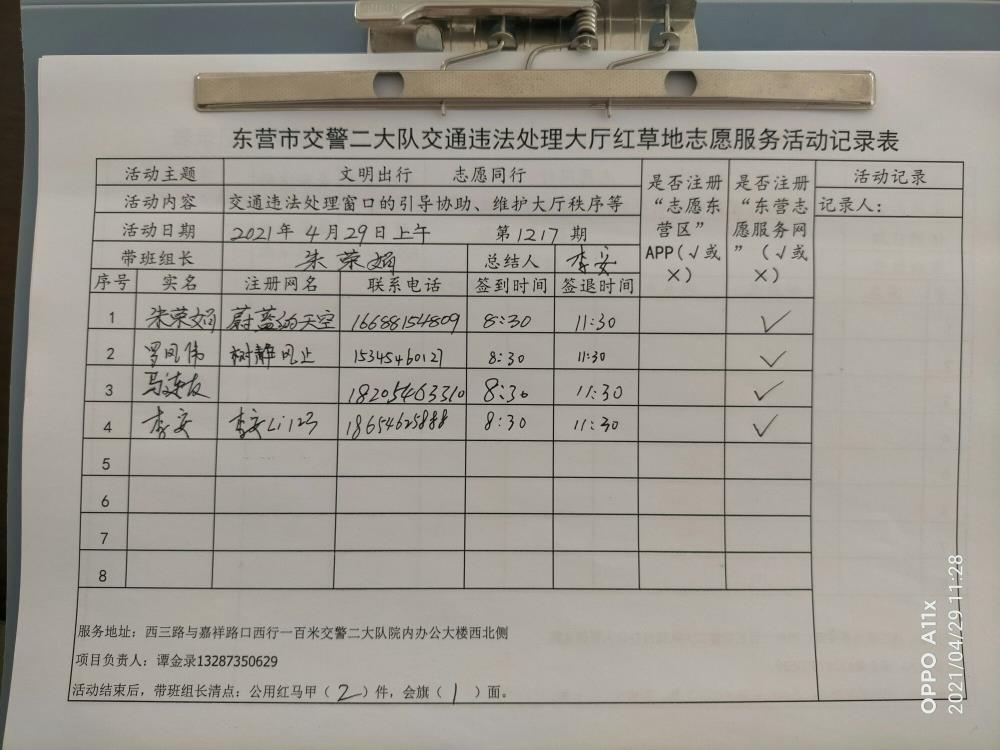 东营市交警二大队交通违法处理大厅红草地志愿服务活动记录表
活动主题 文明出行 志愿同行 是否注册“志愿东营区”APP(√或×) 是否注册“东营志愿服务网”(√或×) 活动记录
活动内容 交通违法处理窗口的引导协助、维护大厅秩序等 记录人:
活动日期 2021年4月29日上午 第1217期
带班组长 朱荣娟 总结人 李安
序号 实名 注册网名 联系电话 签到时间 签退时间
1 朱荣娟 蔚蓝的天空 16688154809 8:30 11:30 ✓
2 罗凤伟 树静风止 15345460127 8:30 11:30 ✓
3 马连友 18205463310 8:30 11:30 ✓
4 李安 李安Li123 18654625888 8:30 11:30 ✓
5
6
7
8
服务地址：西三路与嘉祥路口西行一百米交警二大队院内办公大楼西北侧
项目负责人：谭金录13287350629
活动结束后，带班组长清点：公用红马甲（2）件，会旗（1）面。
OPPO A11x
2021/04/29 11:28